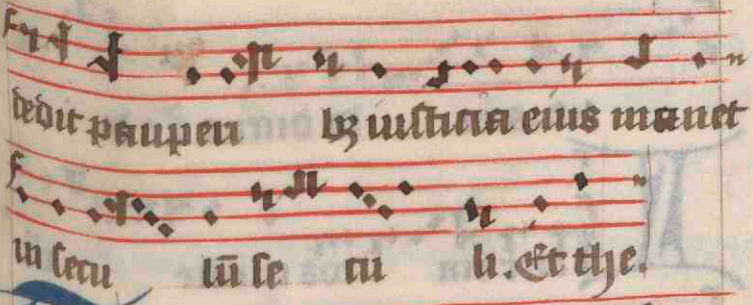 dedit pauperi bꝫ iusticia eius manet
in secu lū se cu li. Et the.